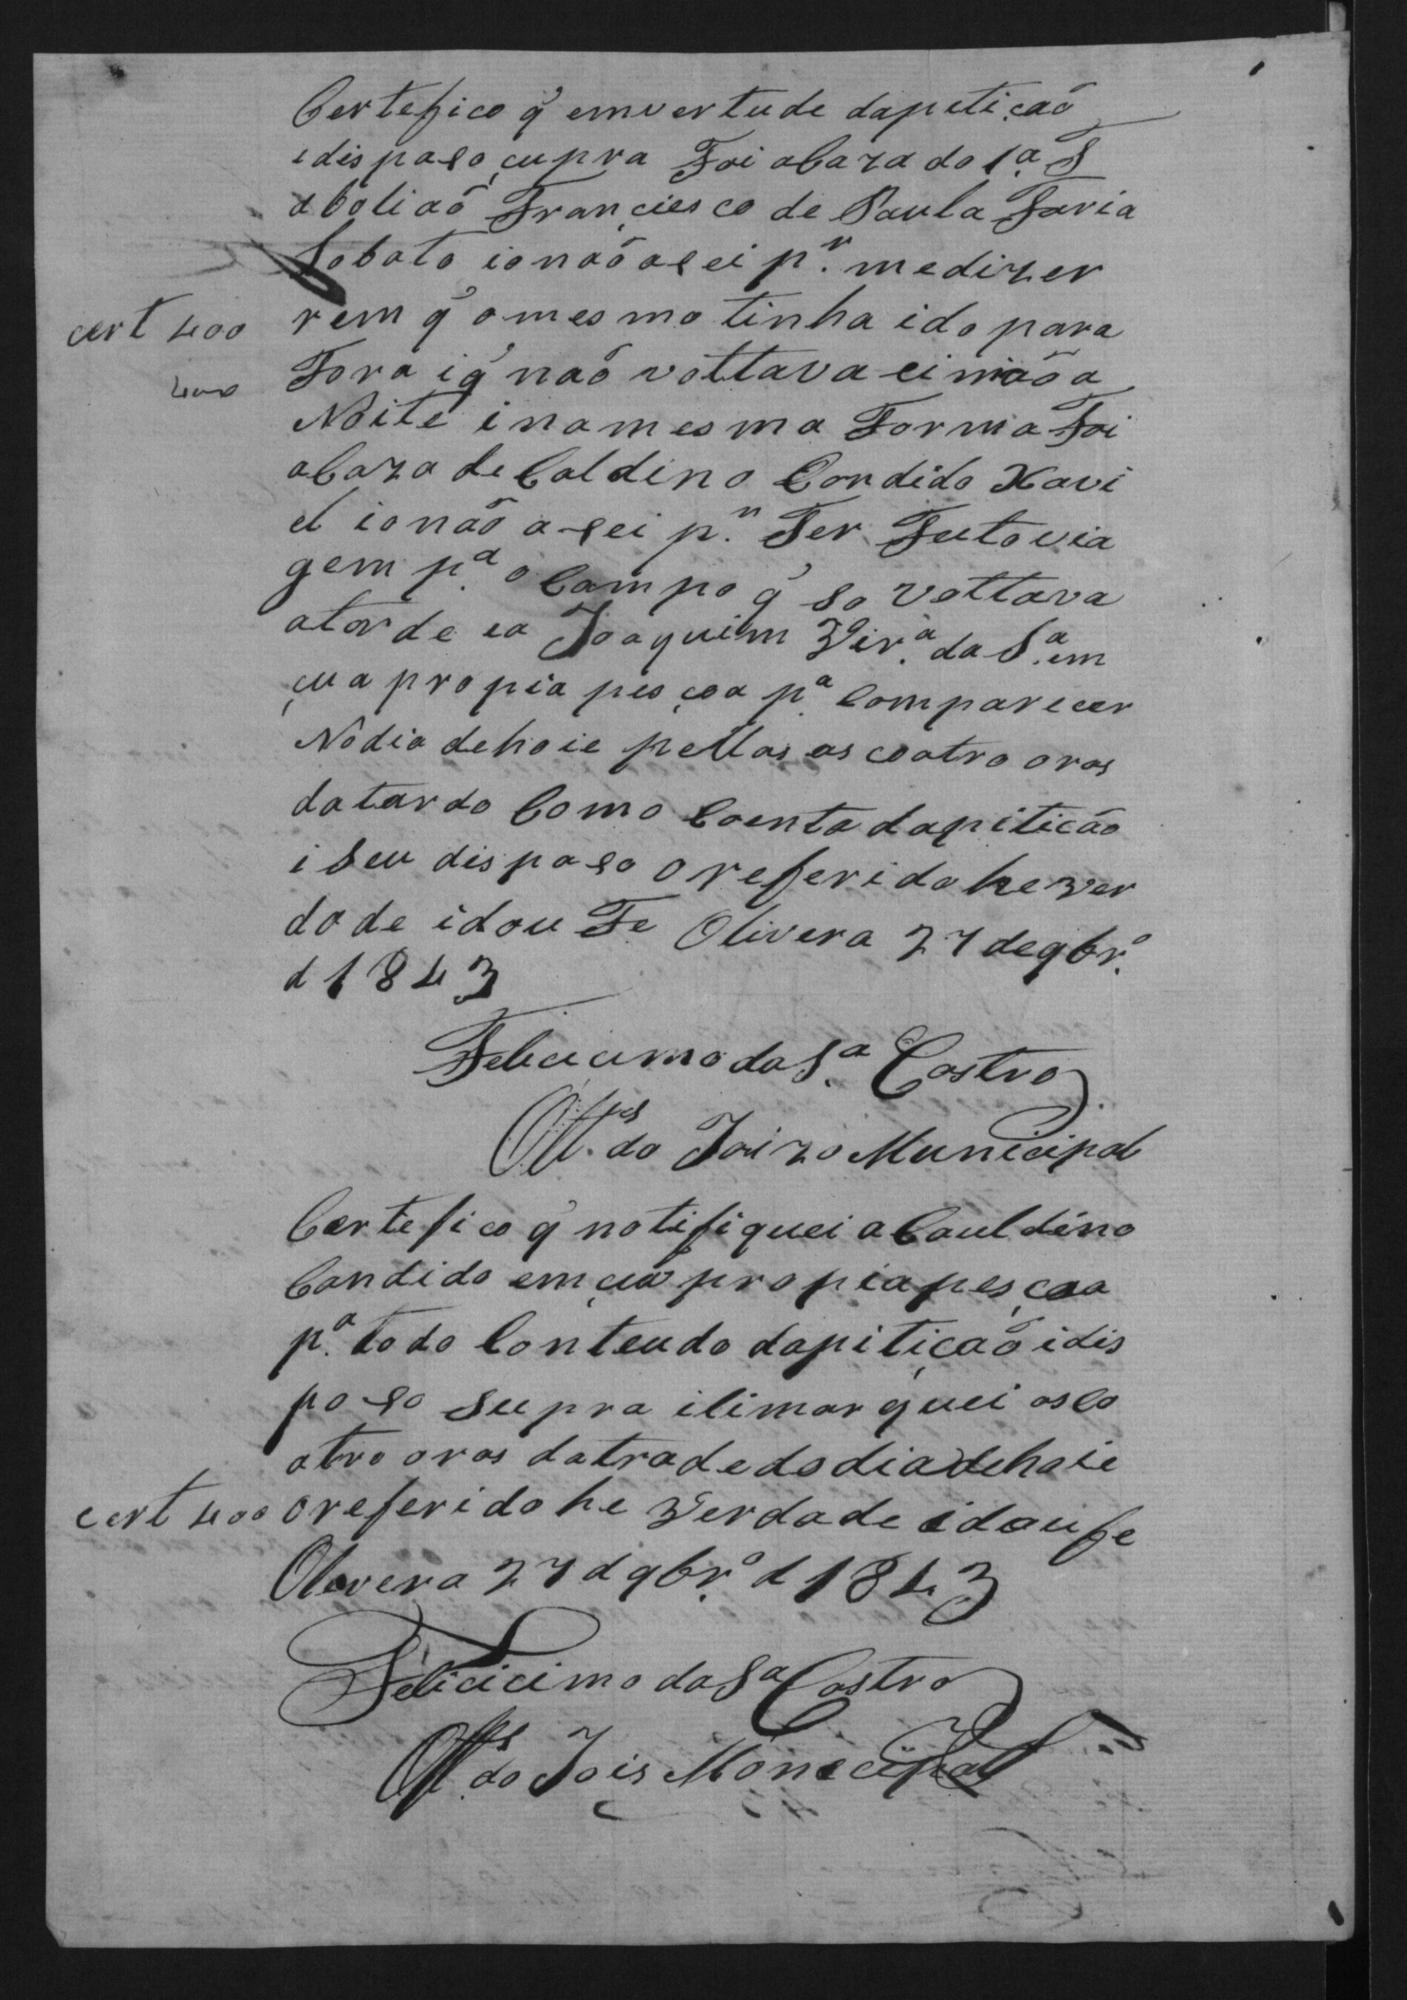 Certefico q̃ emvertude dapetição
idispaso çupra Foi a Caza do 1.ª T
abaliaõ Françiesco de Paula Faria
Lobato ionaõ a sei p.r medizer
rem q̃ omesmo tinha ido para
cert 400
Fora iq̃ naõ vottava ci não a
400
Noite inamesma Forma Foi
a Caza de Caldino Condido Xavi
el ionaõ a sei p.r Ter Feito via
gem p.ª o Campo q̃ so vottava
atarde ea Joaquim Vier.ª da S.ª em
çua propia pesçoa p.ª Comparecer
No dia dehoie pellas as coatro oras
datardo Como Coenta dapitição
i Seu dispaso o referido he ver
dade idou Fe Olivera 27 de 9br.º
d 1843
Felicicimo da S.ª Castro
Off.es do Joizo Municipal
Certefico q̃ notifiquei a Cauldino
Candido em çua propia pesçoa
p.ª todo Conteudo dapitiçaõ idis
paso Supra ilimarquei as Co
atro oras datrade do dia dehoie
cert 400
o referido he verdade idou fe
Olivera 27 d 9br.º d 1843
Felicicimo da S.ª Castro
Off.es do Jois Monecipal